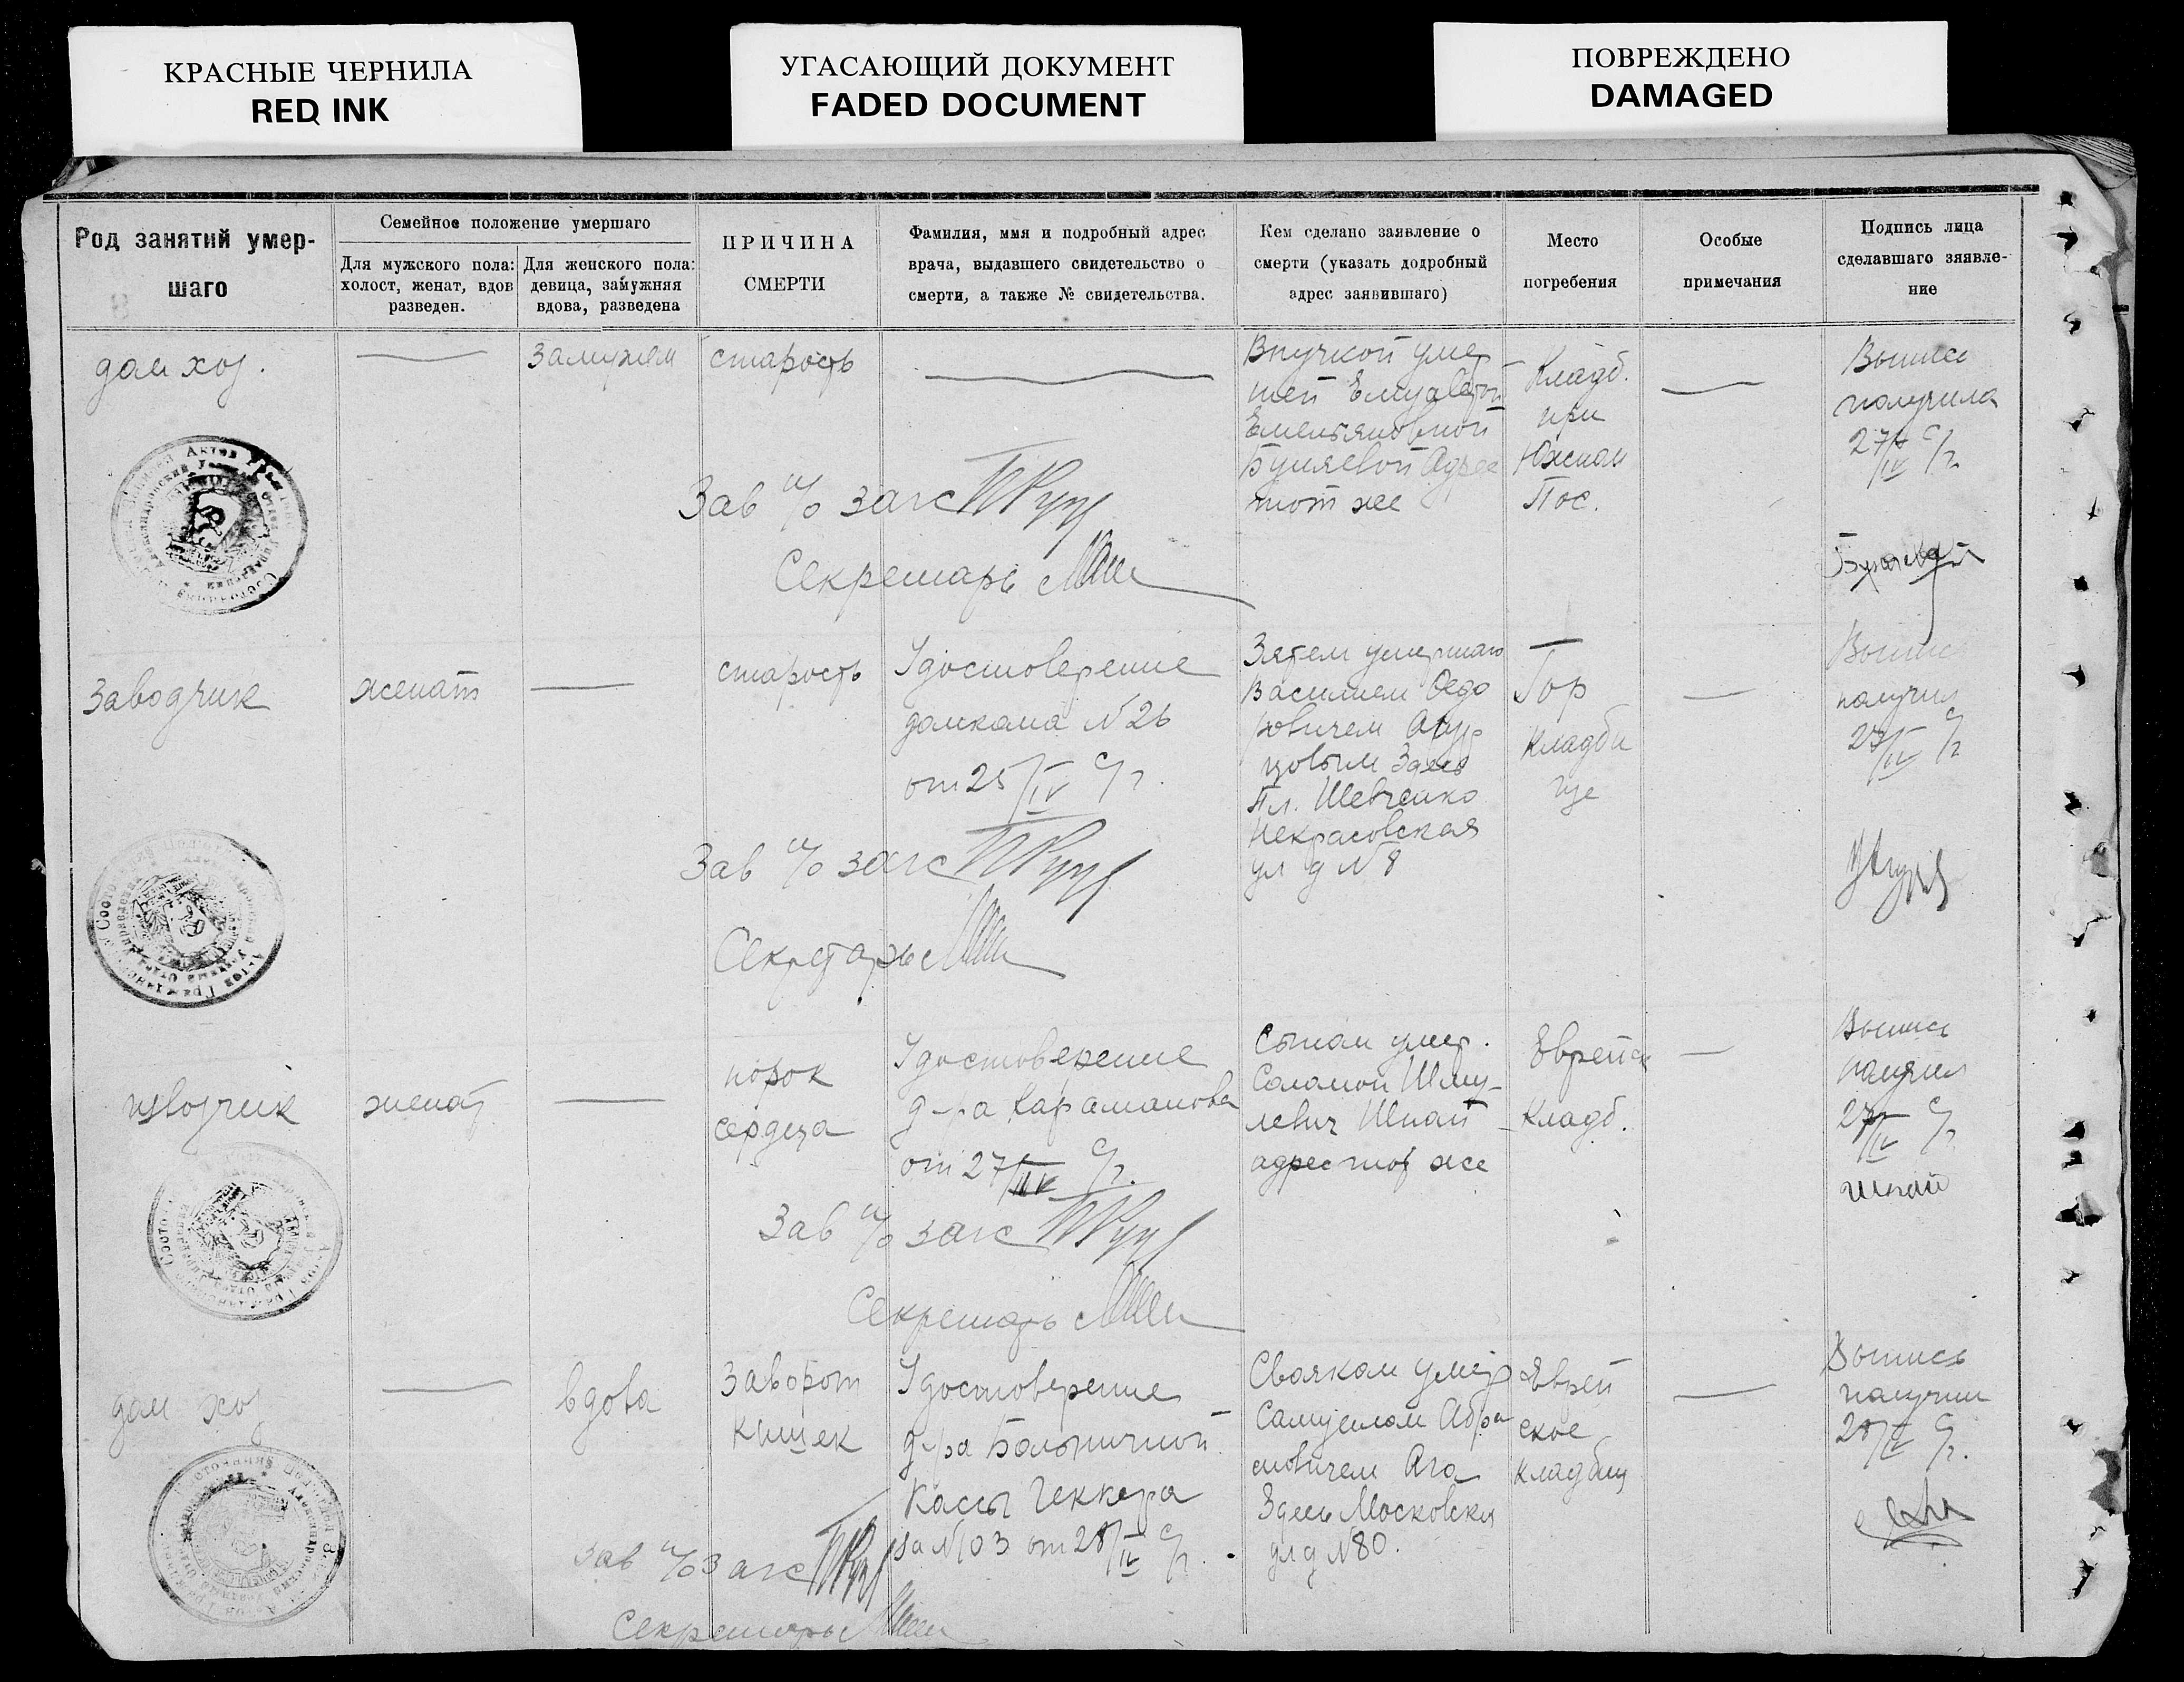 КРАСНЫЕ ЧЕРНИЛА
RED INK
УГАСАЮЩИЙ ДОКУМЕНТ
FADED DOCUMENT
ПОВРЕЖДЕНО
DAMAGED
Род занятий умер-
шаго
Семейное положение умершаго
Для мужского пола:
холост, женат, вдов
разведен.
Для женского пола:
девица, замужняя
вдова, разведена
ПРИЧИНА
СМЕРТИ
Фамилия, имя и подробный адрес
врача, выдавшего свидетельство о
смерти, а также № свидетельства.
Кем сделано заявление о
смерти (указать додробный
адрес заявившаго)
Место
погребения
Особые
примечания
Подпись лица
сделавшаго зяявле-
ние
дом хоз.
замужем
старость
Внучкой умер
шей
Емельяновной
Адрес
тот же
Кладб.
при
Южном
Пос.
Выпись
получила
27/IV с/г
Зав п/о загс
Секретарь
Заводчик
женат
старость
Удостоверение
домкома N 26
от 25/IV с/г.
Зятем умершаго
Василием Федо
ровичем
Здесь
Пл. Шевченко
Некрасовская
ул д N 8
Гор
кладби
ще
Выпись
получил
27/IV с/г
Зав п/о загс
Секретарь
извозчик
женат
порок
сердца
Удостоверение
д-ра Караманова
от 27/IV с/г.
Сыном умер.
Соломон Шму-
левич Шпай
адрес тот же
Еврейск
Кладб.
Выпись
получил
27/IV с/г
Шпай
Зав п/о загс
Секретарь
дом хоз
вдова
Заворот
кишек
Удостоверение
д-ра Больничной
Кассы Геккера
за N 103 от 28/IV с/г.
Свояком умер
Самуилом Абра
мовичем Ага
Здесь Московская
ул д N 80.
Еврей
ское
кладбищ
Выпись
получил
28/IV с/г.
Зав п/о Загс
Секретарь